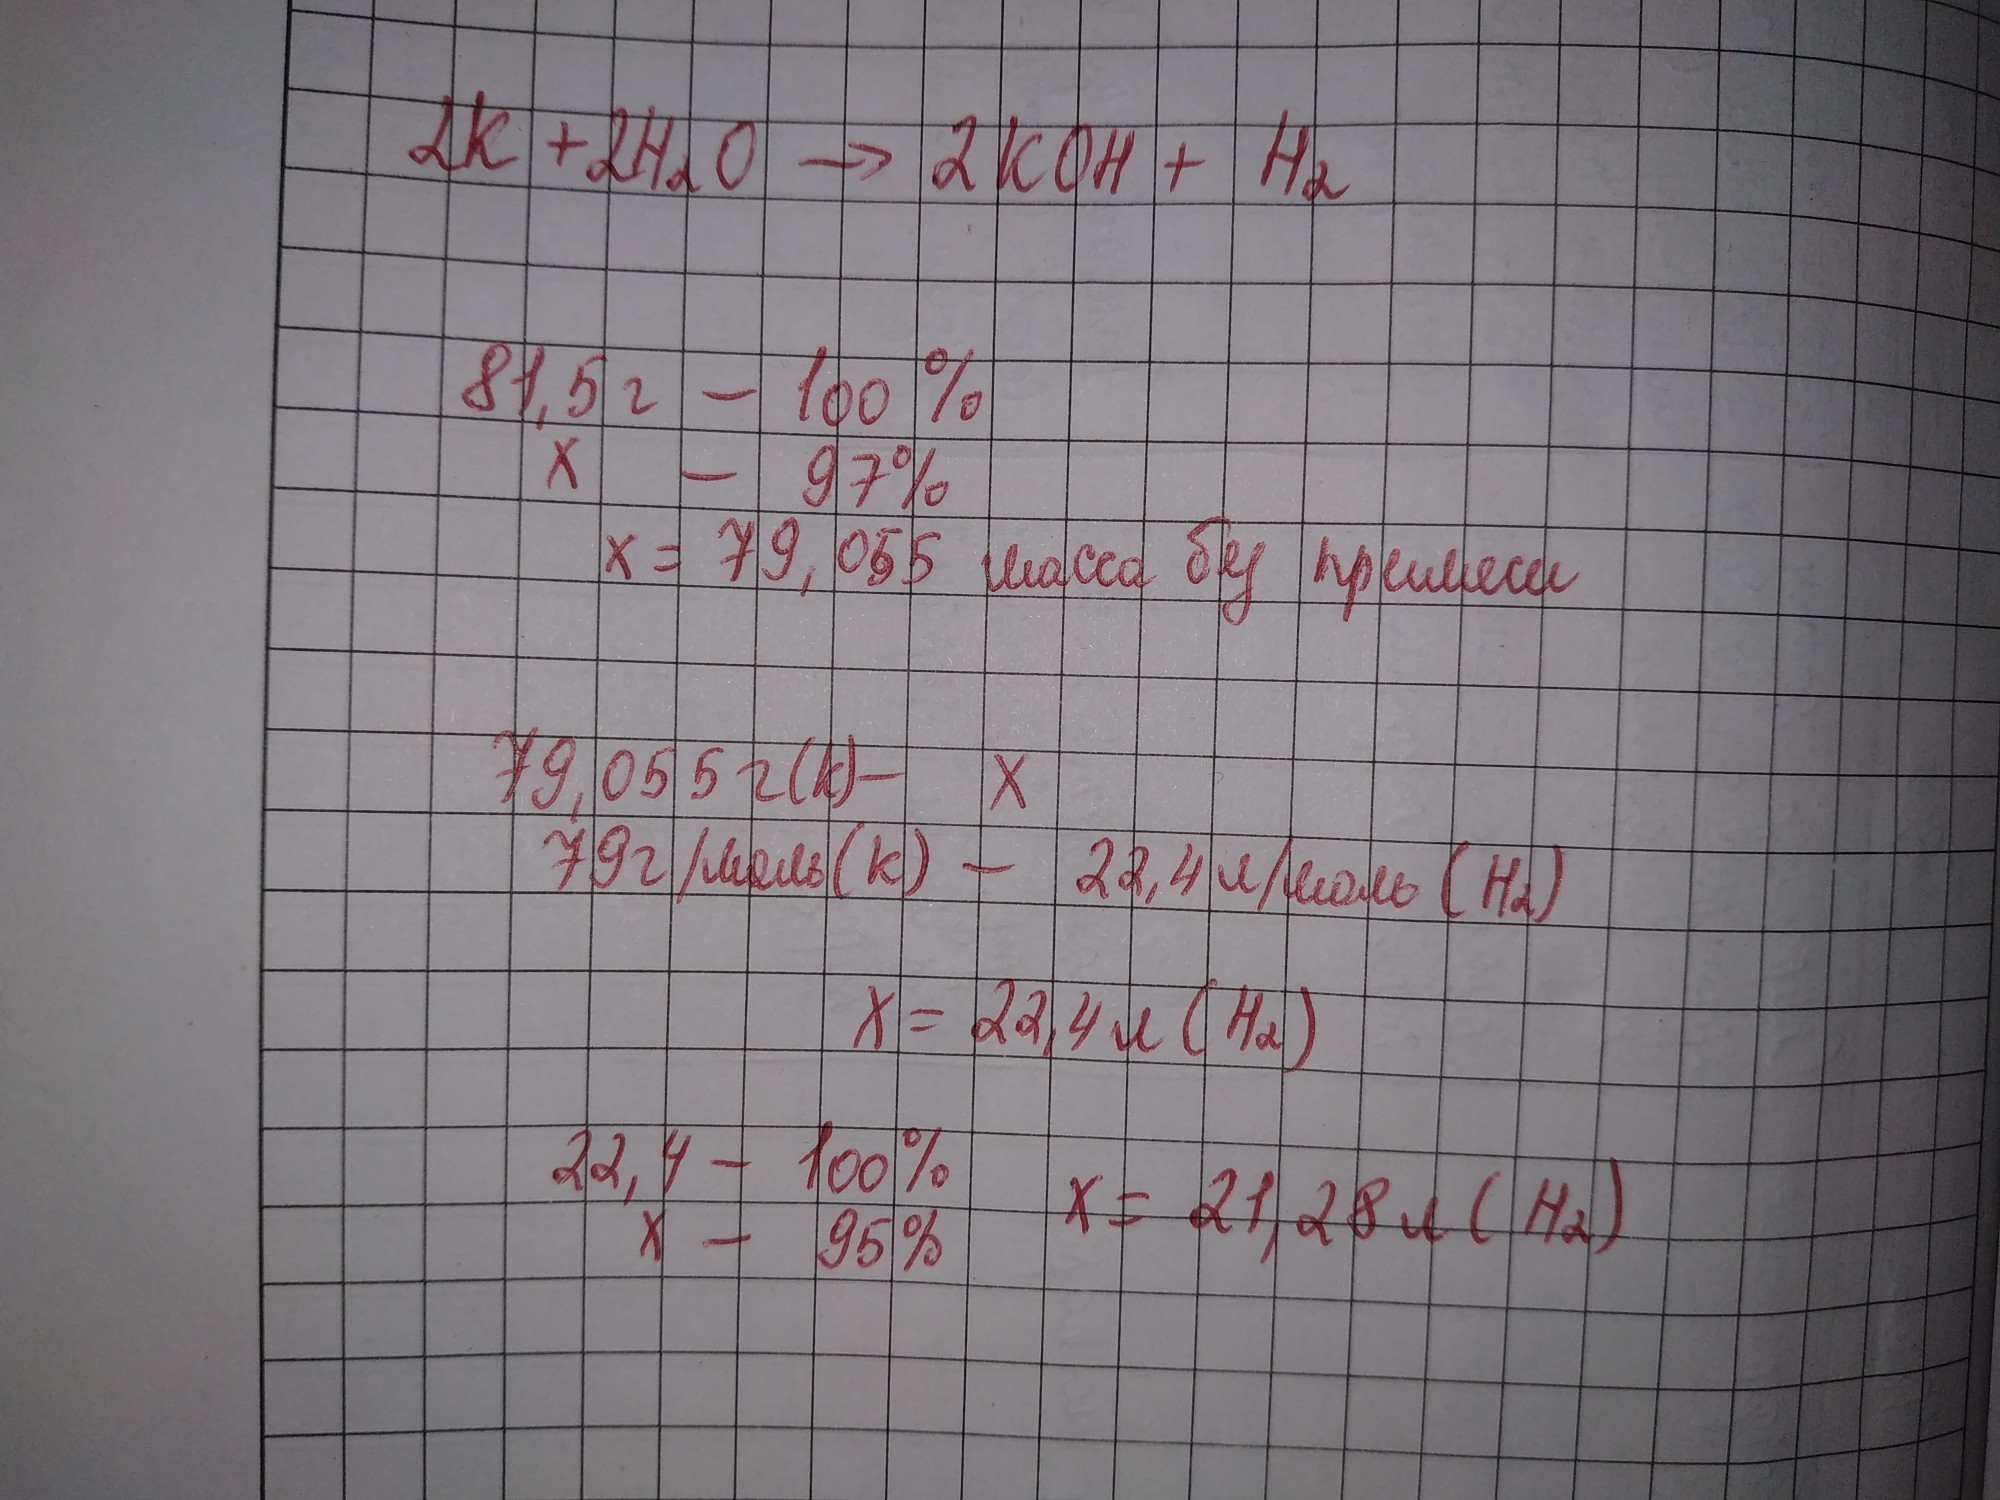 2K + 2H₂O → 2KOH + H₂
81,5г – 100%
x – 97%
x = 79,055 масса без примеси
79,055г(K) – x
79г/моль(K) – 22,4л/моль(H₂)
x = 22,4л(H₂)
22,4 – 100%
x – 95% x = 21,28л(H₂)